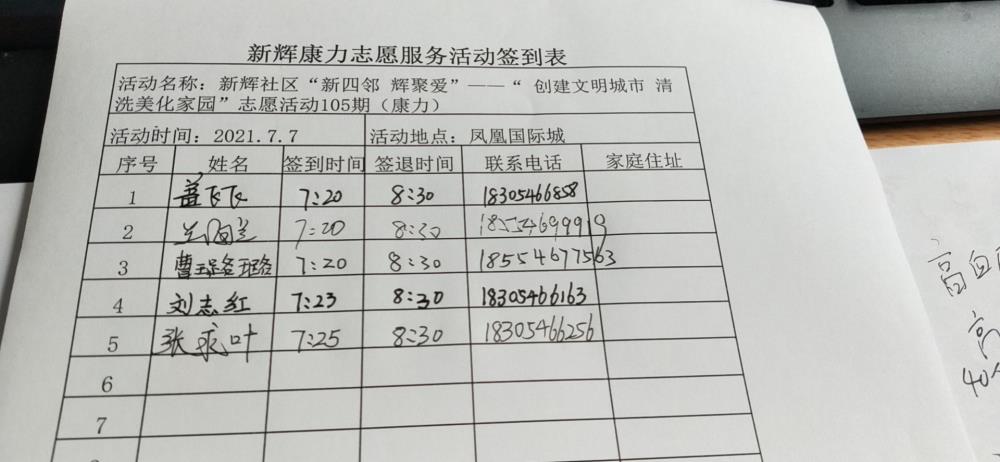 新辉康力志愿服务活动签到表
活动名称：新辉社区“新四邻 辉聚爱”——“ 创建文明城市 清
洗美化家园”志愿活动105期（康力）
活动时间：2021.7.7 活动地点：凤凰国际城
序号 姓名 签到时间 签退时间 联系电话 家庭住址
1 盖飞飞 7:20 8:30 18305466858
2 兰 7:20 8:30
3 曹璐璐 7:20 8:30 18554677563
4 刘志红 7:23 8:30 18305466163
5 张求叶 7:25 8:30 18305466256
6
7
高血
高